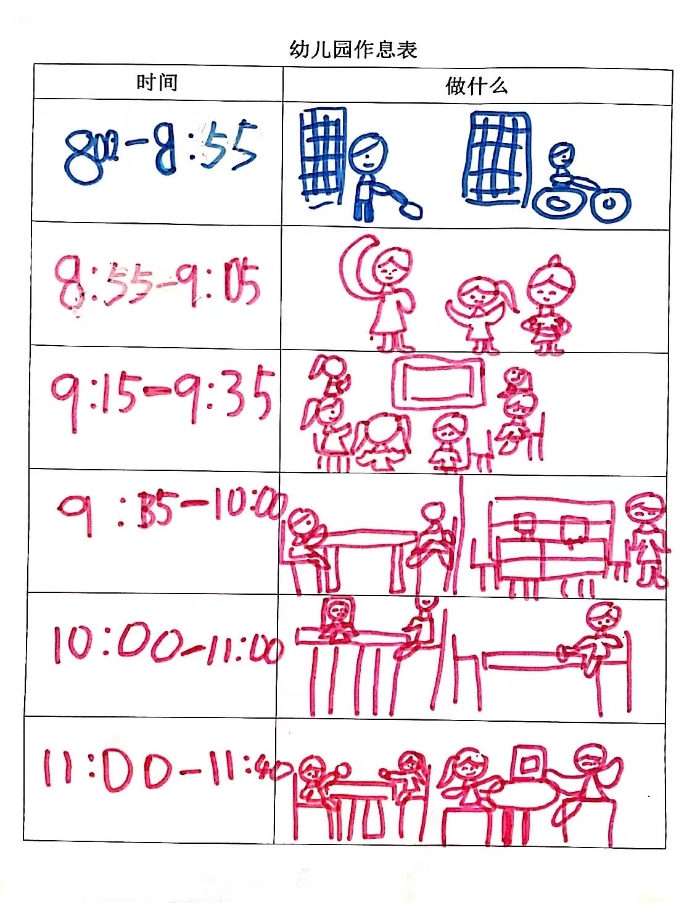 幼儿园作息表
时间 做什么
8:00-8:55
8:55-9:05
9:15-9:35
9:35-10:00
10:00-11:00
11:00-11:40